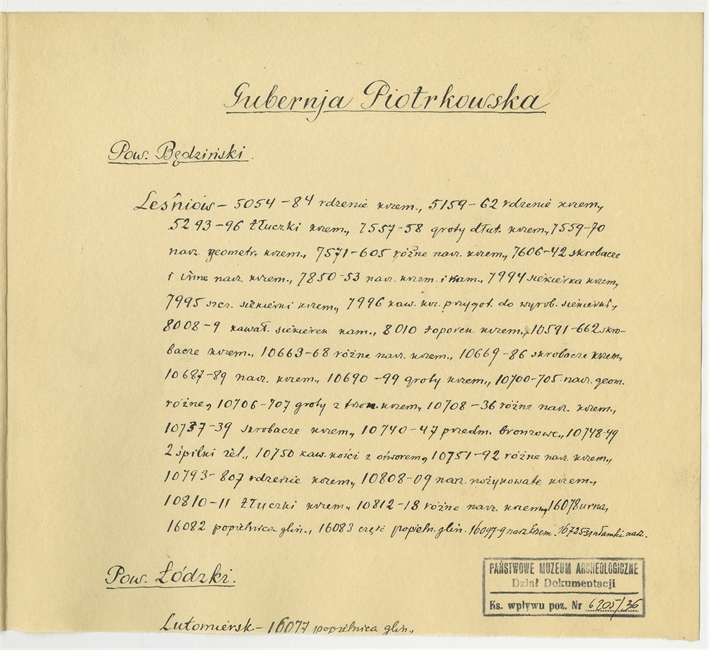 Gubernja Piotrkowska
Pow. Będziński.
Leśniów – 5054-84 rdzenie krzem., 5159-62 rdzenie krzem.,
5293-96 tłuczki krzem., 7557-58 groty dłut. krzem., 7559-70
narz. geometr. krzem., 7571-605 różne narz. krzem., 7606-42 skrobacze
i inne narz. krzem., 7850-53 narz. krzem. i kam., 7994 siekierka krzem.,
7995 szcz. siekierki krzem., 7996 kaw. krz. przygot. do wyrob. siekierki.,
8008-9 kawał. siekierek kam., 8010 toporek krzem., 10591-662 skro-
bacze krzem., 10663-68 różne narz. krzem., 10669-86 skrobacze krzem.,
10687-89 narz. krzem., 10690-99 groty krzem., 10700-705 narz. geom.
różne, 10706-707 groty z krzem., 10708-36 różne narz. krzem.,
10737-39 skrobacze krzem., 10740-47 przedm. bronzowe., 10748-49
2 śpilki żel., 10750 kaw. kości z otworem, 10751-92 różne narz. krzem.,
10793-807 rdzenie krzem., 10808-09 narz. nożykowate krzem.,
10810-11 tłuczki krzem., 10812-18 różne narz. krzem., 16078 urna,
16082 popielnica glin., 16083 część popieln. glin. narz. krzem. ułamki nacz.
PAŃSTWOWE MUZEUM ARCHEOLOGICZNE
Dział Dokumentacji
Ks. wpływu poz. Nr 6205/36
Pow. Łódzki.
Lutomiersk – 16077 popielnica glin.,